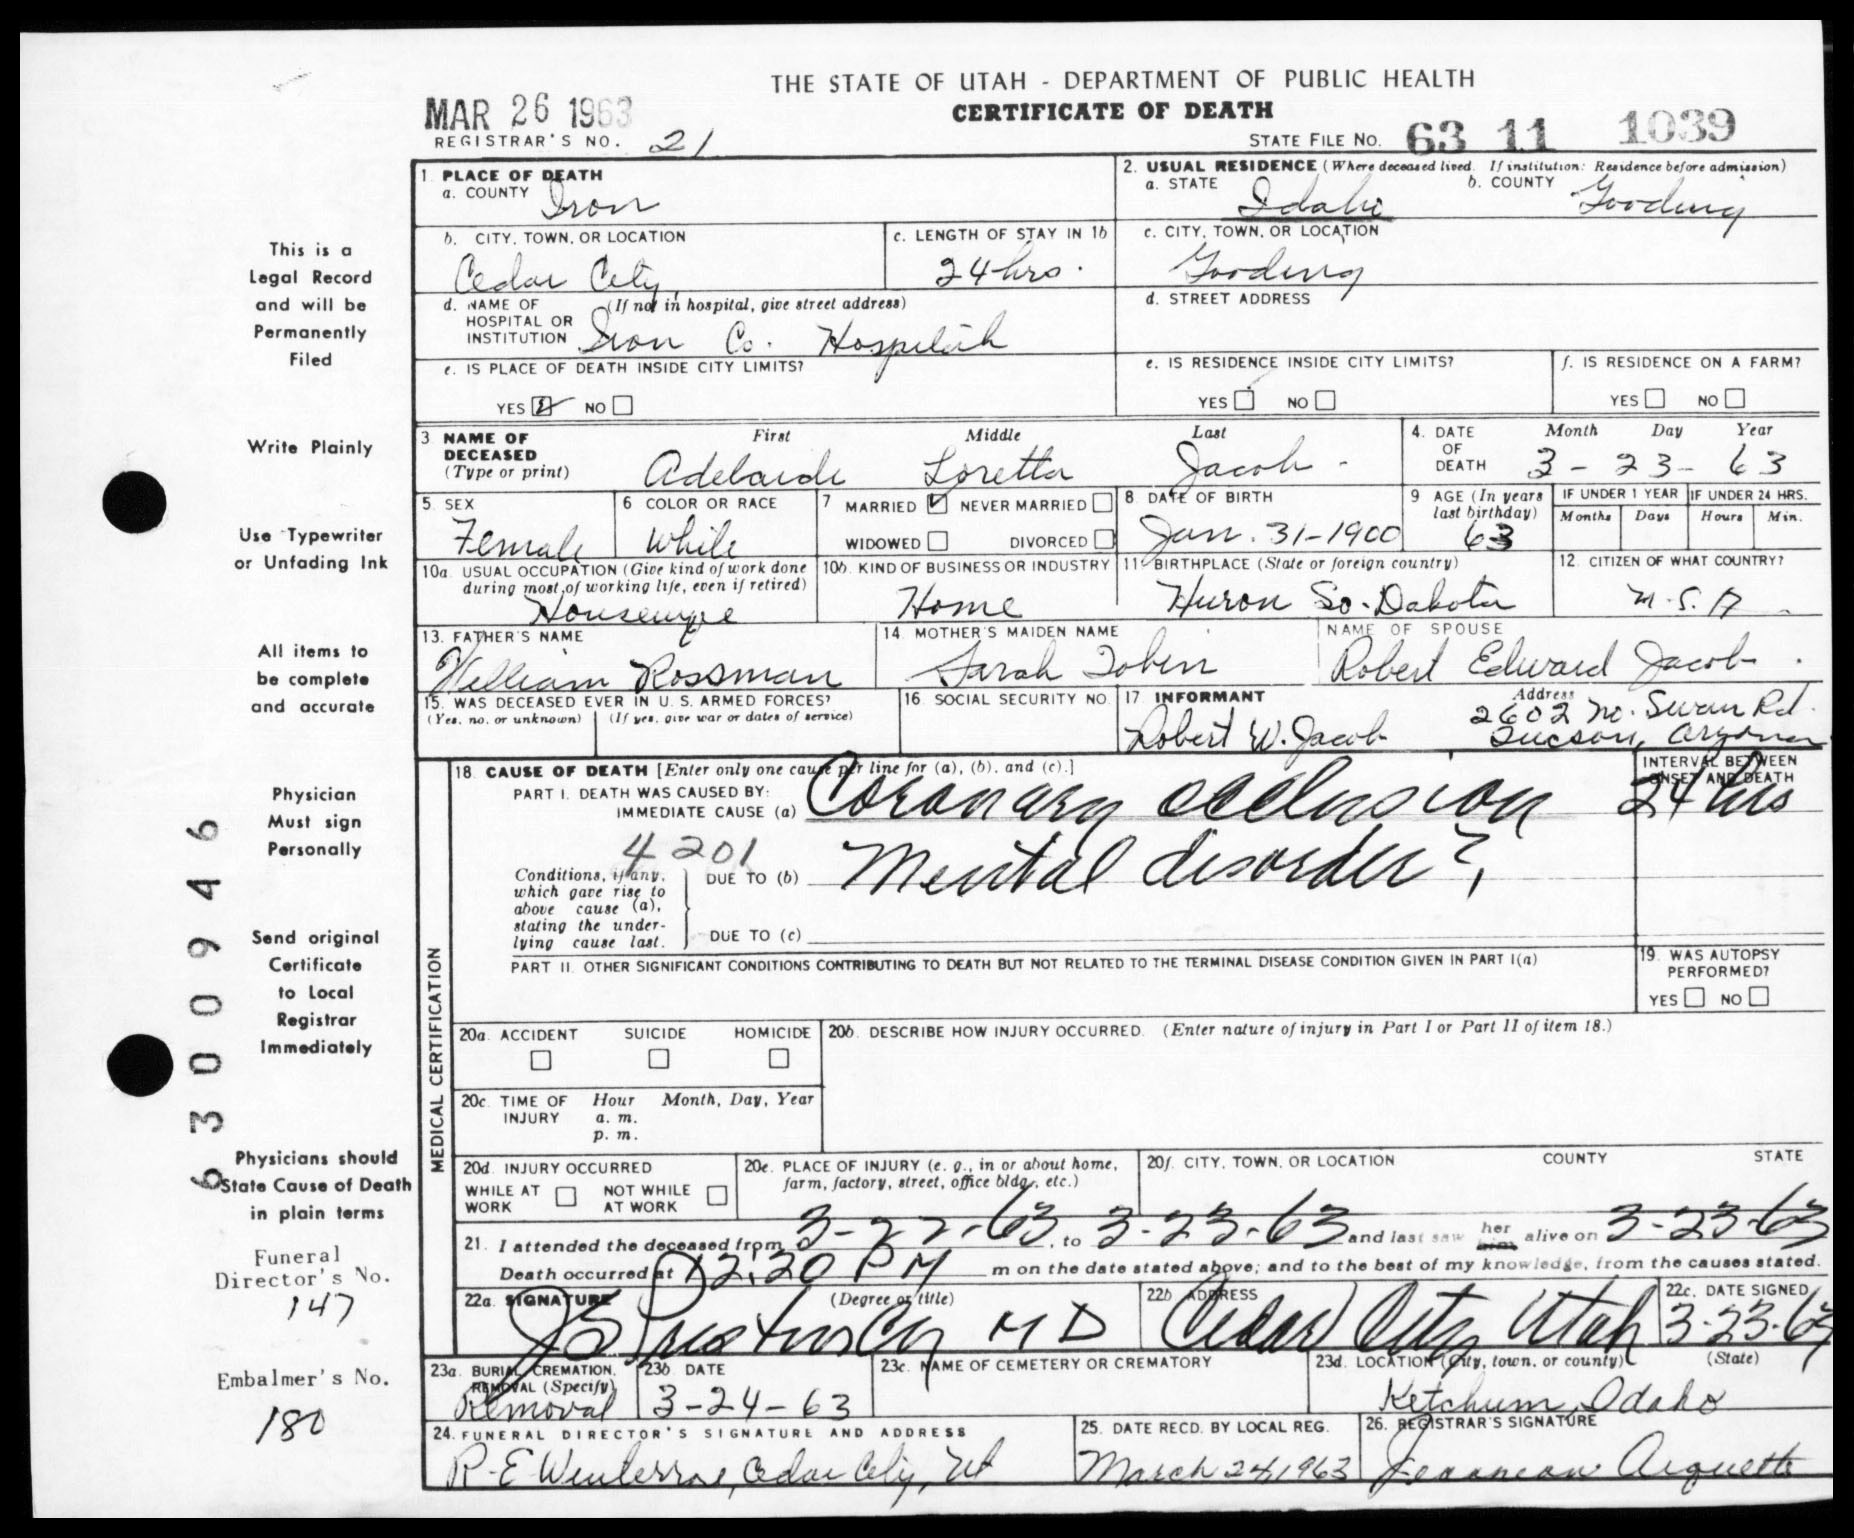 THE STATE OF UTAH - DEPARTMENT OF PUBLIC HEALTH
MAR 26 1963
CERTIFICATE OF DEATH
REGISTRAR'S NO. 21
STATE FILE NO. 63 11 1039
1. PLACE OF DEATH
a. COUNTY Iron
2. USUAL RESIDENCE (Where deceased lived. If institution: Residence before admission)
a. STATE Idaho b. COUNTY Gooding
b. CITY, TOWN, OR LOCATION
Cedar City
c. LENGTH OF STAY IN 1b
24 hrs.
c. CITY, TOWN, OR LOCATION
Gooding
d. NAME OF (If not in hospital, give street address)
HOSPITAL OR
INSTITUTION Iron Co. Hospital
d. STREET ADDRESS
e. IS PLACE OF DEATH INSIDE CITY LIMITS?
YES NO
e. IS RESIDENCE INSIDE CITY LIMITS?
YES NO
f. IS RESIDENCE ON A FARM?
YES NO
3. NAME OF DECEASED
(Type or print)
First Middle Last
Adelaide Loretta Jacob
4. DATE OF DEATH
Month Day Year
3-23-63
5. SEX
Female
6 COLOR OR RACE
White
7 MARRIED NEVER MARRIED
WIDOWED DIVORCED
8 DATE OF BIRTH
Jan. 31-1900
9 AGE (In years last birthday)
63
IF UNDER 1 YEAR
Months Days
IF UNDER 24 HRS.
Hours Min.
10a. USUAL OCCUPATION (Give kind of work done
during most of working life, even if retired)
Housewife
10b. KIND OF BUSINESS OR INDUSTRY
Home
11 BIRTHPLACE (State or foreign country)
Huron So. Dakota
12. CITIZEN OF WHAT COUNTRY?
U.S.A.
13. FATHER'S NAME
William Rossman
14. MOTHER'S MAIDEN NAME
Sarah Tobin
NAME OF SPOUSE
Robert Edward Jacob.
15. WAS DECEASED EVER IN U. S. ARMED FORCES?
(Yes, no, or unknown) (If yes, give war or dates of service)
16. SOCIAL SECURITY NO.
17 INFORMANT Address
Robert W. Jacob
2602 No. Swan Rd.
Tucson, Aryona
MEDICAL CERTIFICATION
18. CAUSE OF DEATH [Enter only one cause per line for (a), (b), and (c).]
INTERVAL BETWEEN
ONSET AND DEATH
PART I. DEATH WAS CAUSED BY:
IMMEDIATE CAUSE (a) Coronary occlusion 24 hrs
4201
Conditions, if any,
which gave rise to
above cause (a),
stating the under-
lying cause last.
DUE TO (b) Mental disorder?
DUE TO (c)
PART II. OTHER SIGNIFICANT CONDITIONS CONTRIBUTING TO DEATH BUT NOT RELATED TO THE TERMINAL DISEASE CONDITION GIVEN IN PART I(a)
19. WAS AUTOPSY
PERFORMED?
YES NO
20a. ACCIDENT SUICIDE HOMICIDE
20b. DESCRIBE HOW INJURY OCCURRED. (Enter nature of injury in Part I or Part II of item 18.)
20c. TIME OF INJURY
Hour Month, Day, Year
a. m.
p. m.
20d. INJURY OCCURRED
WHILE AT WORK NOT WHILE AT WORK
20e. PLACE OF INJURY (e. g., in or about home,
farm, factory, street, office bldg., etc.)
20f. CITY, TOWN, OR LOCATION COUNTY STATE
21. I attended the deceased from 3-22-63, to 3-23-63 and last saw her him alive on 3-23-63
Death occurred at 12:20 PM m on the date stated above; and to the best of my knowledge, from the causes stated.
22a. SIGNATURE (Degree or title)
M D
22b ADDRESS
Cedar City Utah
22c. DATE SIGNED
3-23-63
23a. BURIAL, CREMATION,
REMOVAL (Specify)
Removal
23b DATE
3-24-63
23c. NAME OF CEMETERY OR CREMATORY
23d. LOCATION (City, town, or county) (State)
Ketchum, Idaho
24. FUNERAL DIRECTOR'S SIGNATURE AND ADDRESS
Cedar City, Ut
25. DATE RECD. BY LOCAL REG.
March 24, 1963
26. REGISTRAR'S SIGNATURE
Arquette
This is a
Legal Record
and will be
Permanently
Filed
Write Plainly
Use Typewriter
or Unfading Ink
All items to
be complete
and accurate
Physician
Must sign
Personally
Send original
Certificate
to Local
Registrar
Immediately
Physicians should
State Cause of Death
in plain terms
Funeral
Director's No.
147
Embalmer's No.
180
6300946